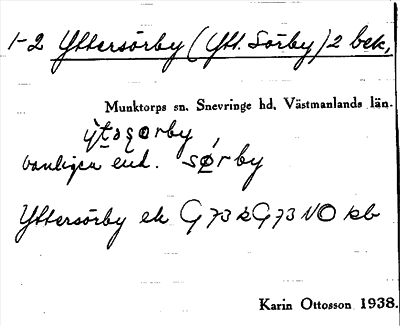 1-2 Yttersörby (Ytt. Sörby) 2 bek.
Munktorps sn. Snevringe hd. Västmanlands län.
ỳtəsǫrby
vanligen end. sǿrby
Yttersörby ek G 73 k G 73 NO kb
Karin Ottosson 1938.